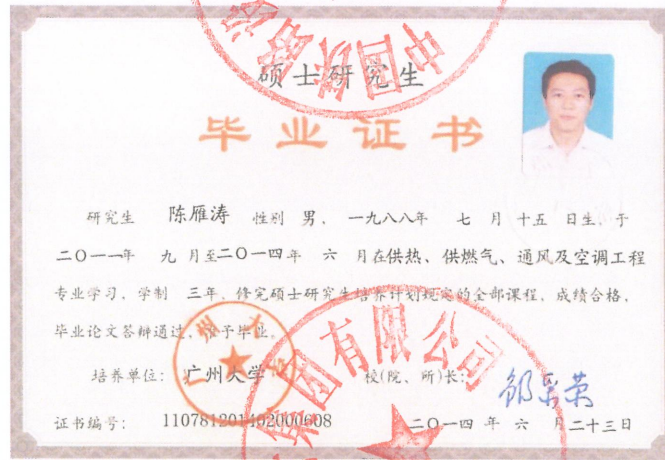 硕士研究生
毕业证书
研究生 陈雁涛 性别 男、一九八八年 七 月 十五 日生、于
二〇一一年 九 月至二〇一四年 六 月在供热、供燃气、通风及空调工程
专业学习，学制 三年，修完硕士研究生培养计划规定的全部课程，成绩合格，
毕业论文答辩通过，准予毕业。
培养单位： 广州大学 校(院、所)长：
证书编号： 110781201402000608 二〇一四 年 六 月二十三日
中国铁路
集团有限公司